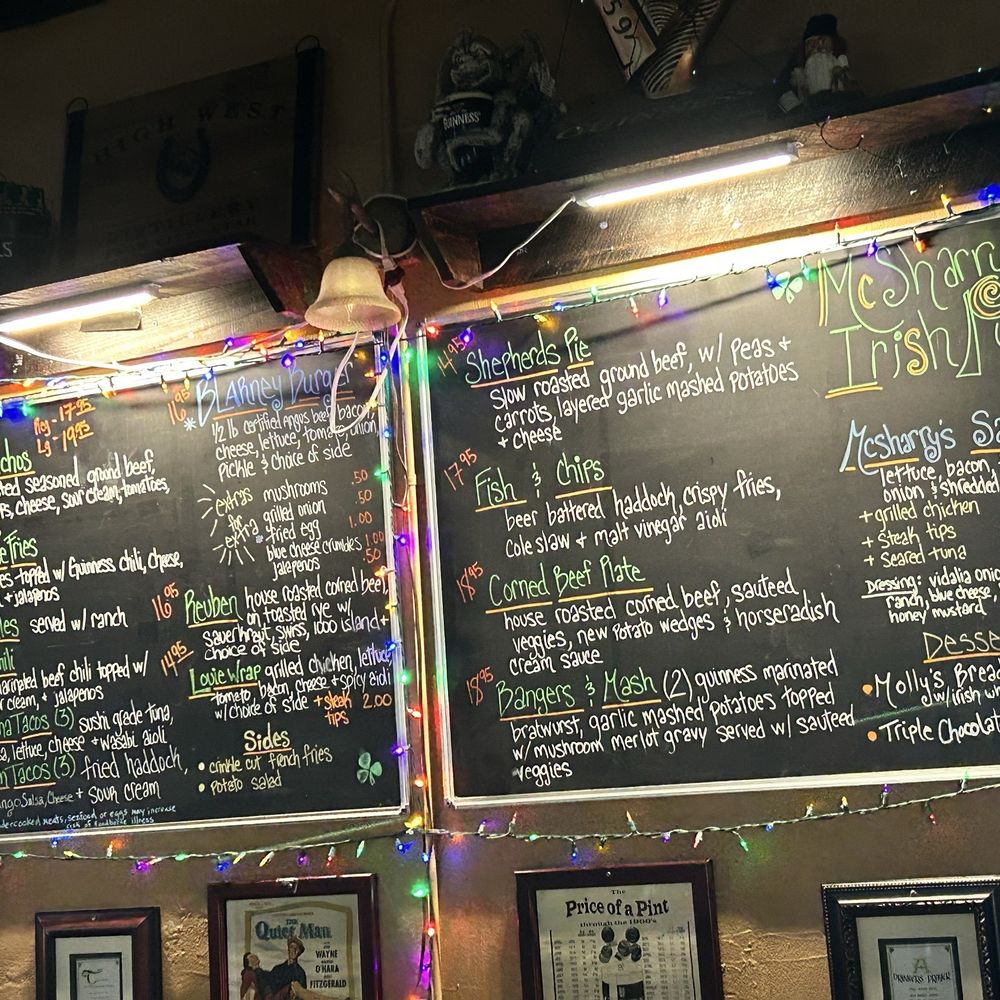 HIGH WEST
GUINNESS
59
Reg - 17.95
Lg - 19.95
seasoned ground beef,
cheese, sour cream, tomatoes,
Fries
topped w/ Guinness chili, cheese,
+ jalapenos
served w/ ranch
beef chili topped w/
cream, & jalapenos
Tacos (3) sushi grade tuna,
lettuce, cheese + wasabi aioli
Tacos (3) fried haddock,
Salsa, Cheese + sour cream
meats, seafood or eggs may increase
risk of foodborne illness
16.95
* BLARNEY Burger
1/2 lb certified Angus beef, bacon,
cheese, lettuce, tomato, onion,
pickle & choice of side
extras for extra
mushrooms .50
grilled onion .50
fried egg 1.00
blue cheese crumbles 1.00
jalapenos .50
16.95
Reuben house roasted corned beef,
on toasted rye w/
sauerkraut, swiss, 1000 island +
choice of side
14.95
Louie Wrap grilled chicken, lettuce
tomato, bacon, cheese + spicy aioli
w/ choice of side + steak tips 2.00
Sides
• crinkle cut french fries
• potato salad
14.95
Shepherds Pie
Slow roasted ground beef, w/ Peas +
carrots layered garlic mashed potatoes
+ cheese
17.95
Fish & Chips
beer battered haddock, crispy fries,
cole slaw + malt vinegar aioli
18.95
Corned Beef Plate
house roasted corned beef, sauteed
veggies, new potato wedges & horseradish
cream sauce
18.95
Bangers & Mash (2) guinness marinated
bratwurst, garlic mashed potatoes topped
w/ mushroom merlot gravy served w/ sauteed
veggies
McSharry
Irish P
Mcsharry's Sa
lettuce, bacon,
onion & shredded
+ grilled chicken
+ steak tips
+ seared tuna
Dressing: vidalia onion
ranch, blue cheese,
honey mustard
Desse
• Molly's Brea
w/ irish wh
• Triple Chocolat
THE
Quiet Man
WAYNE
O'HARA
FITZGERALD
The
Price of a Pint
through the 1900's